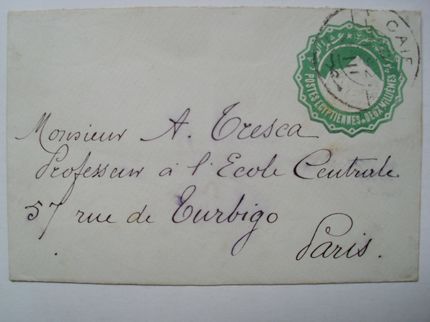 LE CAIRE
POSTES EGYPTIENNES
DEUX MILLIEMES
Monsieur A. Tresca
Professeur à l'Ecole Centrale
57 rue de Turbigo
Paris.